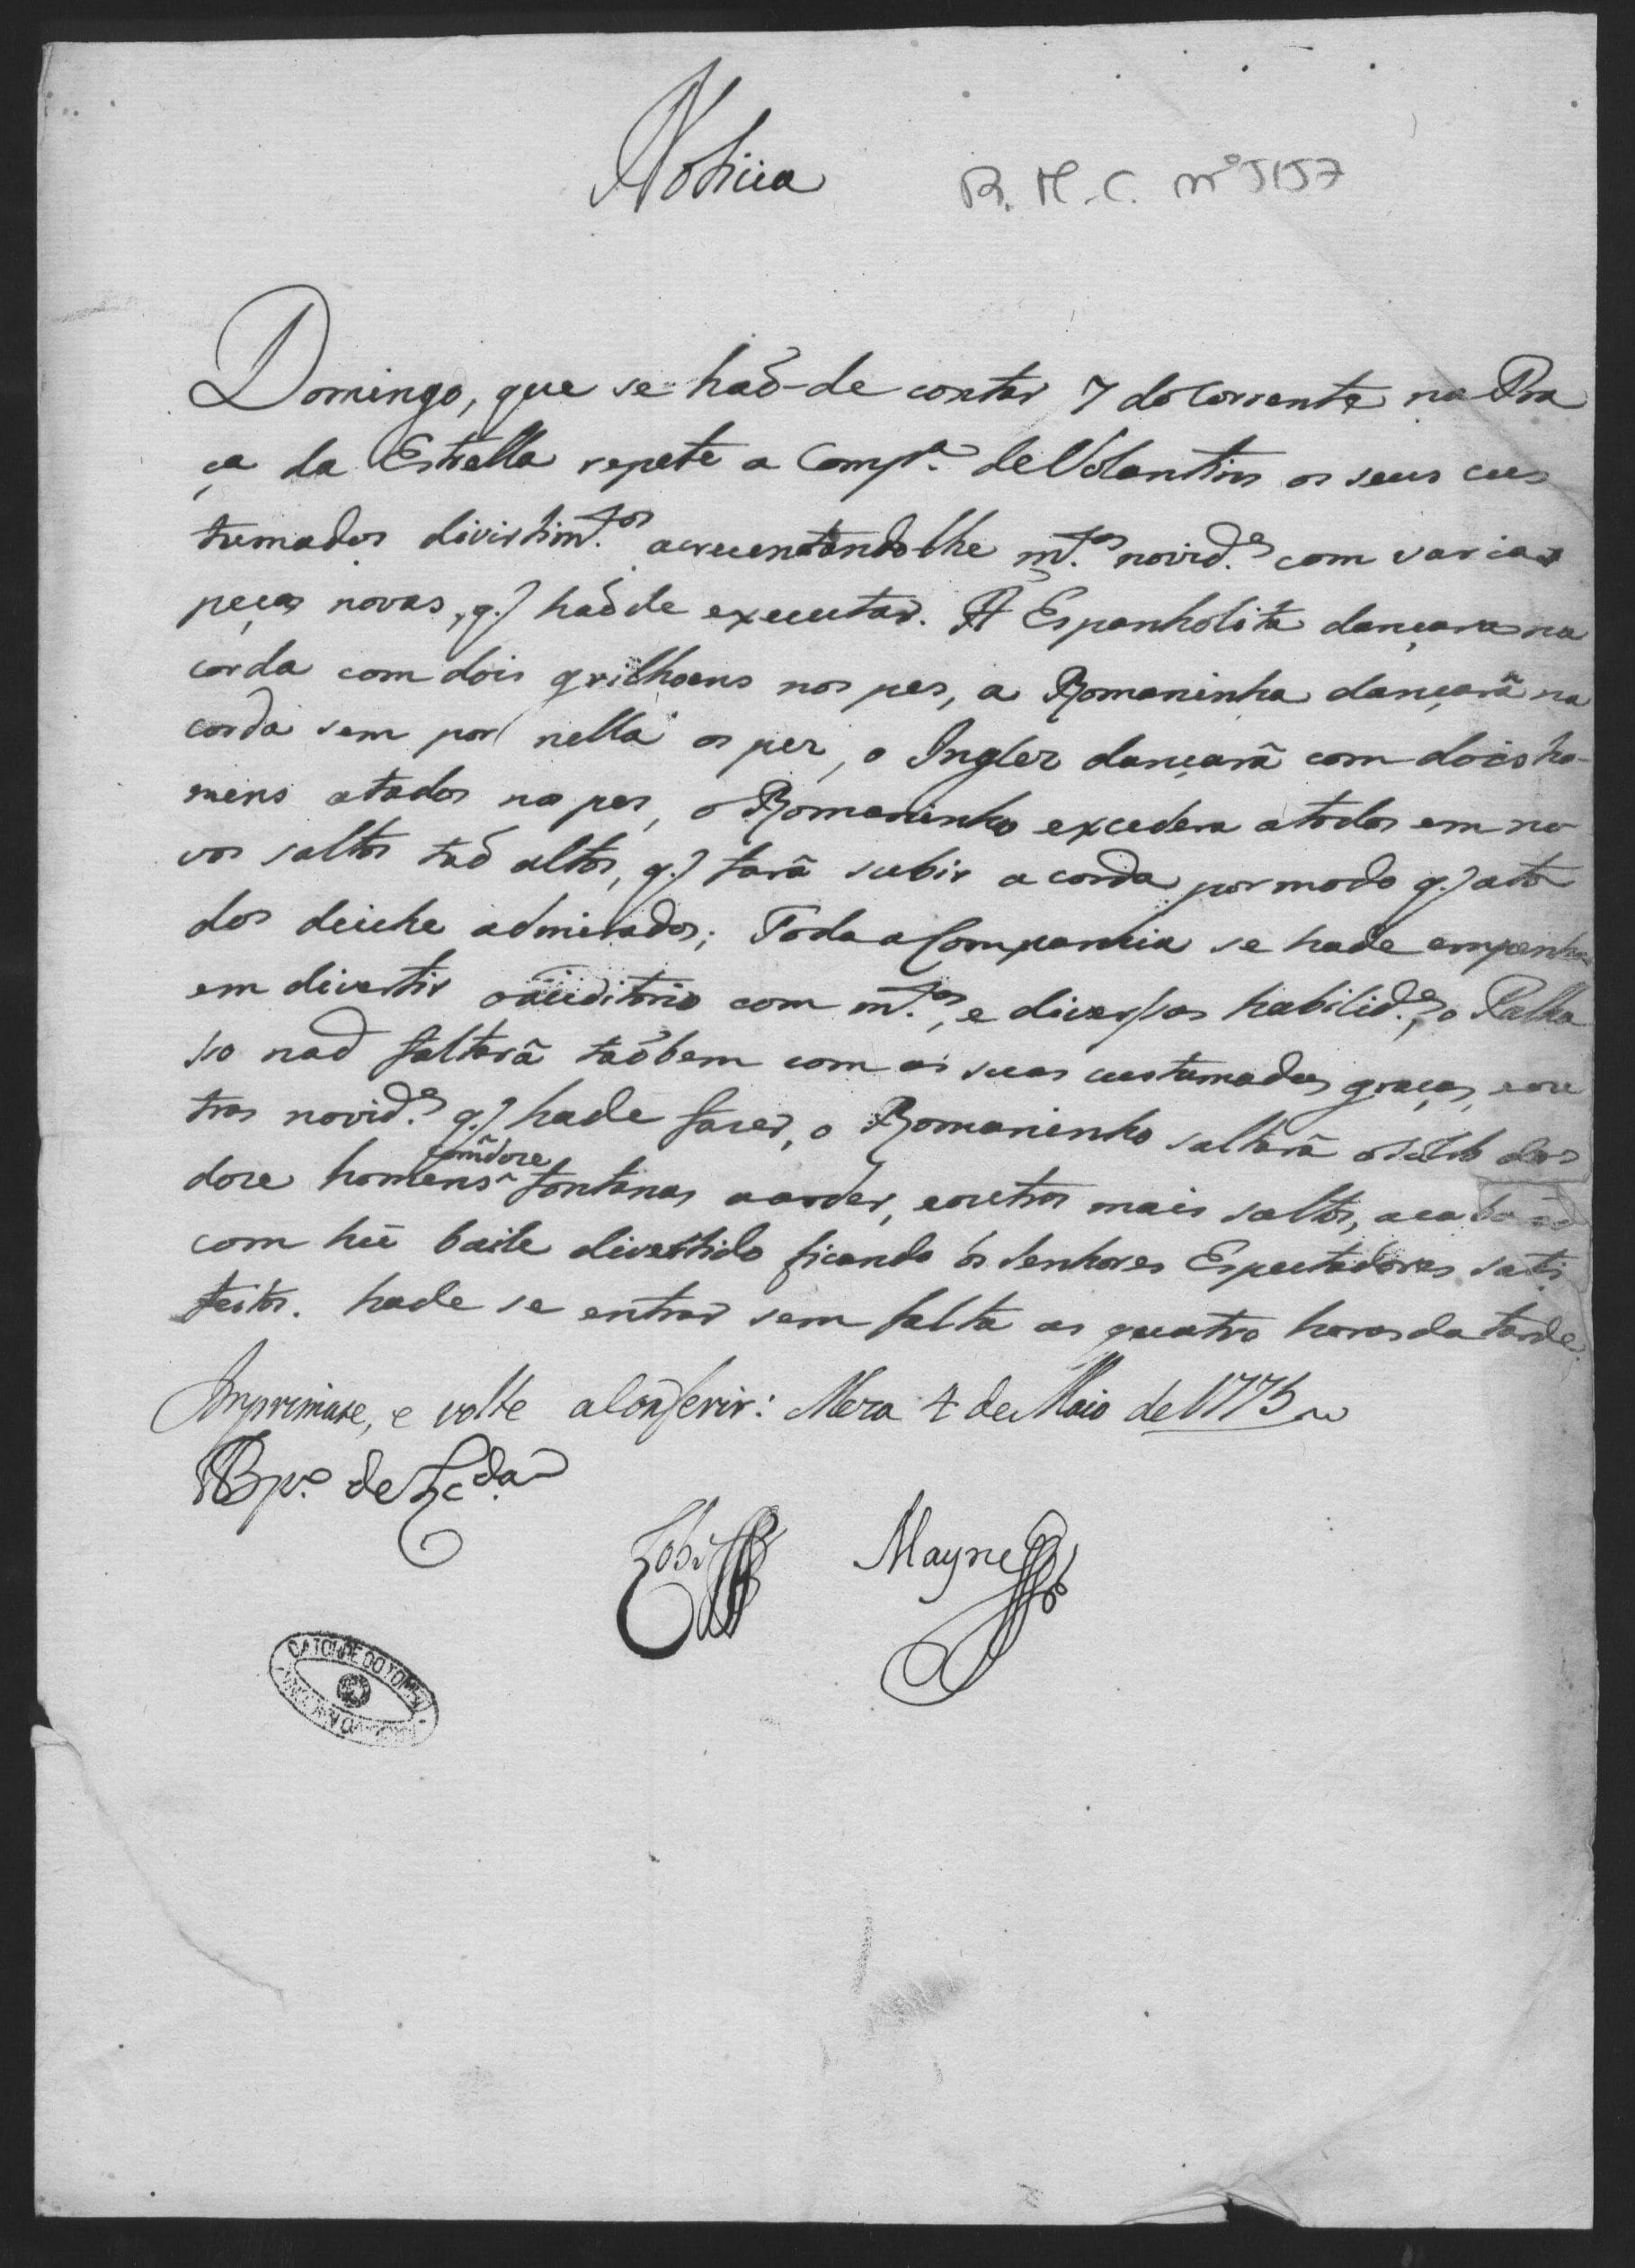 Noticia
R. M. C. nº 5157
Domingo, que se haõ-de contar 7 do Corrente na Pra
ça da Estrella repete a Comp.ª de Volantins os seus cus
tumados divirtim.tos acrecentandolhe m.tas novid.es com varias
peças novas, q. haõde executar. A Espanholita dançara na
corda com dois grilhoens nos pes, a Romaninha dançarâ na
corda sem por nella os pez, o Inglez dançarâ com dois ho-
mens atados nos pes, o Romaninho excedera atodos em no
vos saltos taõ altos, q. farâ subir a corda por modo q. ato
dos deiche admirados; Toda a Companhia se hade empenhar
em divertir o auditorio com m.tas, e diversas habilid.es, o Palha
so naõ faltarâ taõbem com as suas custumadas graças, e ou
tras novid.es q. hade fazer, o Romaninho saltarâ o salto dos
com doze
doze homens fontanas a arder, e outros mais saltos, acabando
com hũ baile divertido ficando os Senhores Espectadores satis
feitos. hade se entrar sem falta as quatro horas da tarde.
Imprimase, e volte a Conferir: Meza 4 de Maio de 1775
Mayne